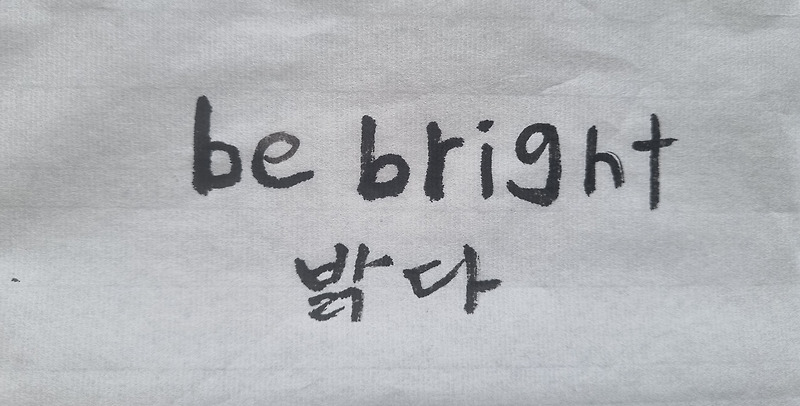 be bright
밝다